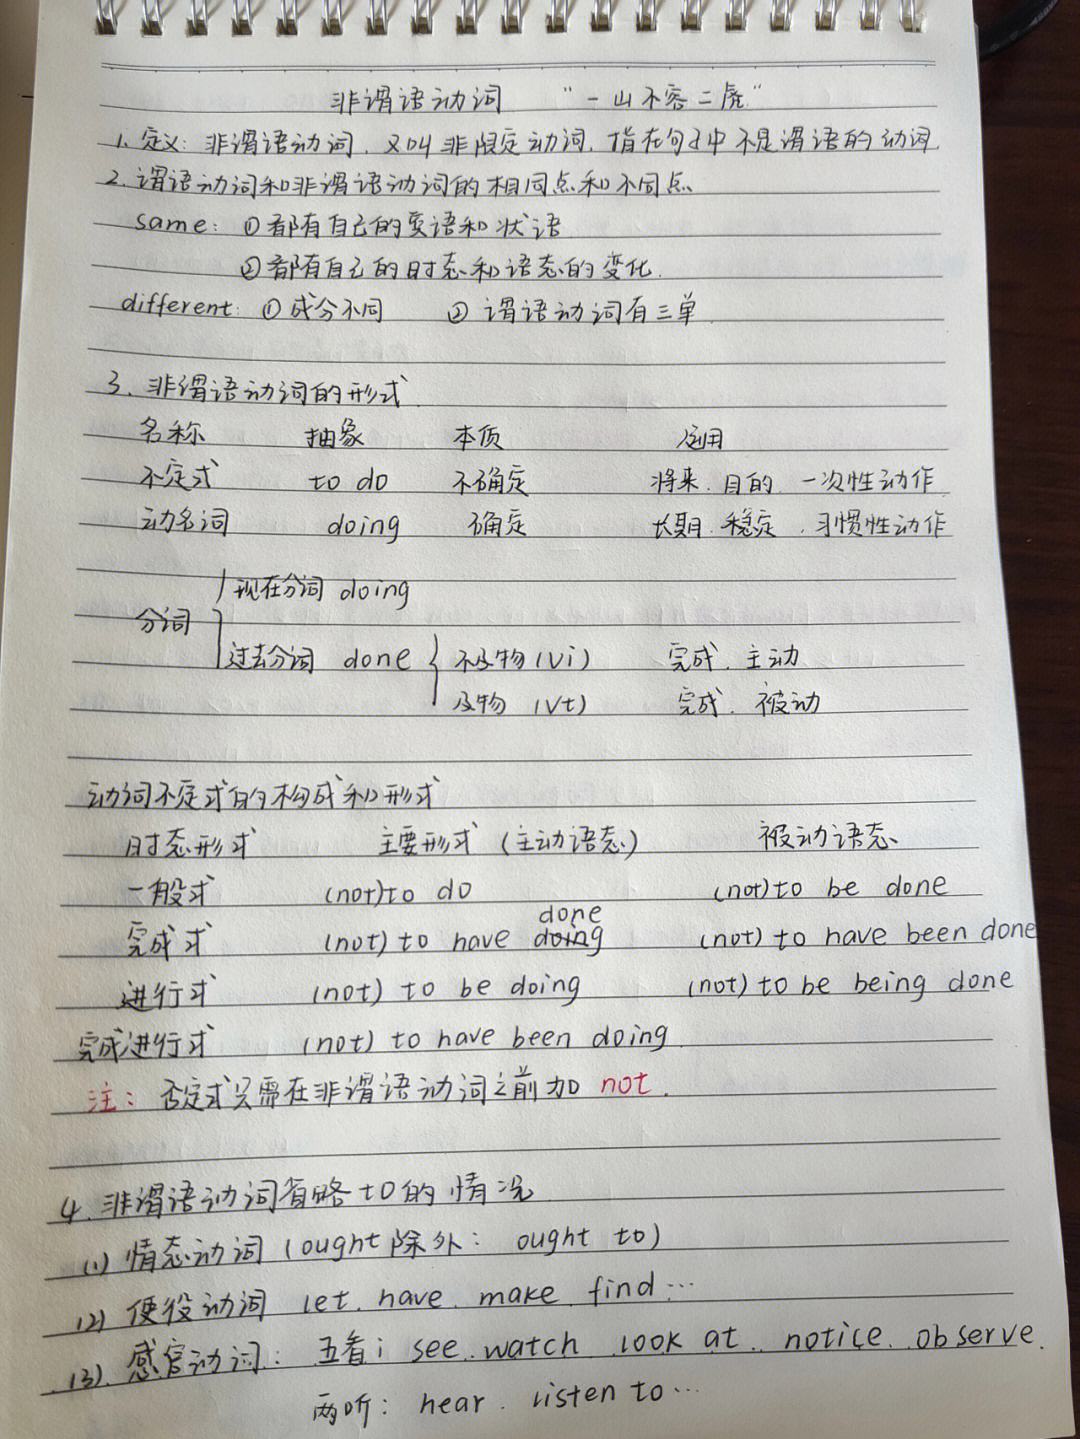 非谓语动词 "一山不容二虎"
1. 定义: 非谓语动词, 又叫非限定动词, 指在句子中不是谓语的动词
2. 谓语动词和非谓语动词的相同点和不同点
same: ①都有自己的宾语和状语
②都有自己的时态和语态的变化.
different: ①成分不同 ②谓语动词有三单
3. 非谓语动词的形式
名称 抽象 本质 运用
不定式 to do 不确定 将来. 目的. 一次性动作
动名词 doing 确定 长期. 稳定. 习惯性动作
现在分词 doing
分词
过去分词 done { 不及物 (Vi) 完成. 主动
及物 (Vt) 完成. 被动
动词不定式的构成和形式
时态形式 主要形式 (主动语态) 被动语态
一般式 (not) to do (not) to be done
done
完成式 (not) to have doing (not) to have been done
进行式 (not) to be doing (not) to be being done
完成进行式 (not) to have been doing
注: 否定式只需在非谓语动词之前加 not.
4. 非谓语动词省略 to 的情况
(1) 情态动词 (ought 除外: ought to)
(2) 使役动词 let. have. make. find...
(3). 感官动词: 五看: see. watch. look at. notice. observe.
两听: hear. listen to...